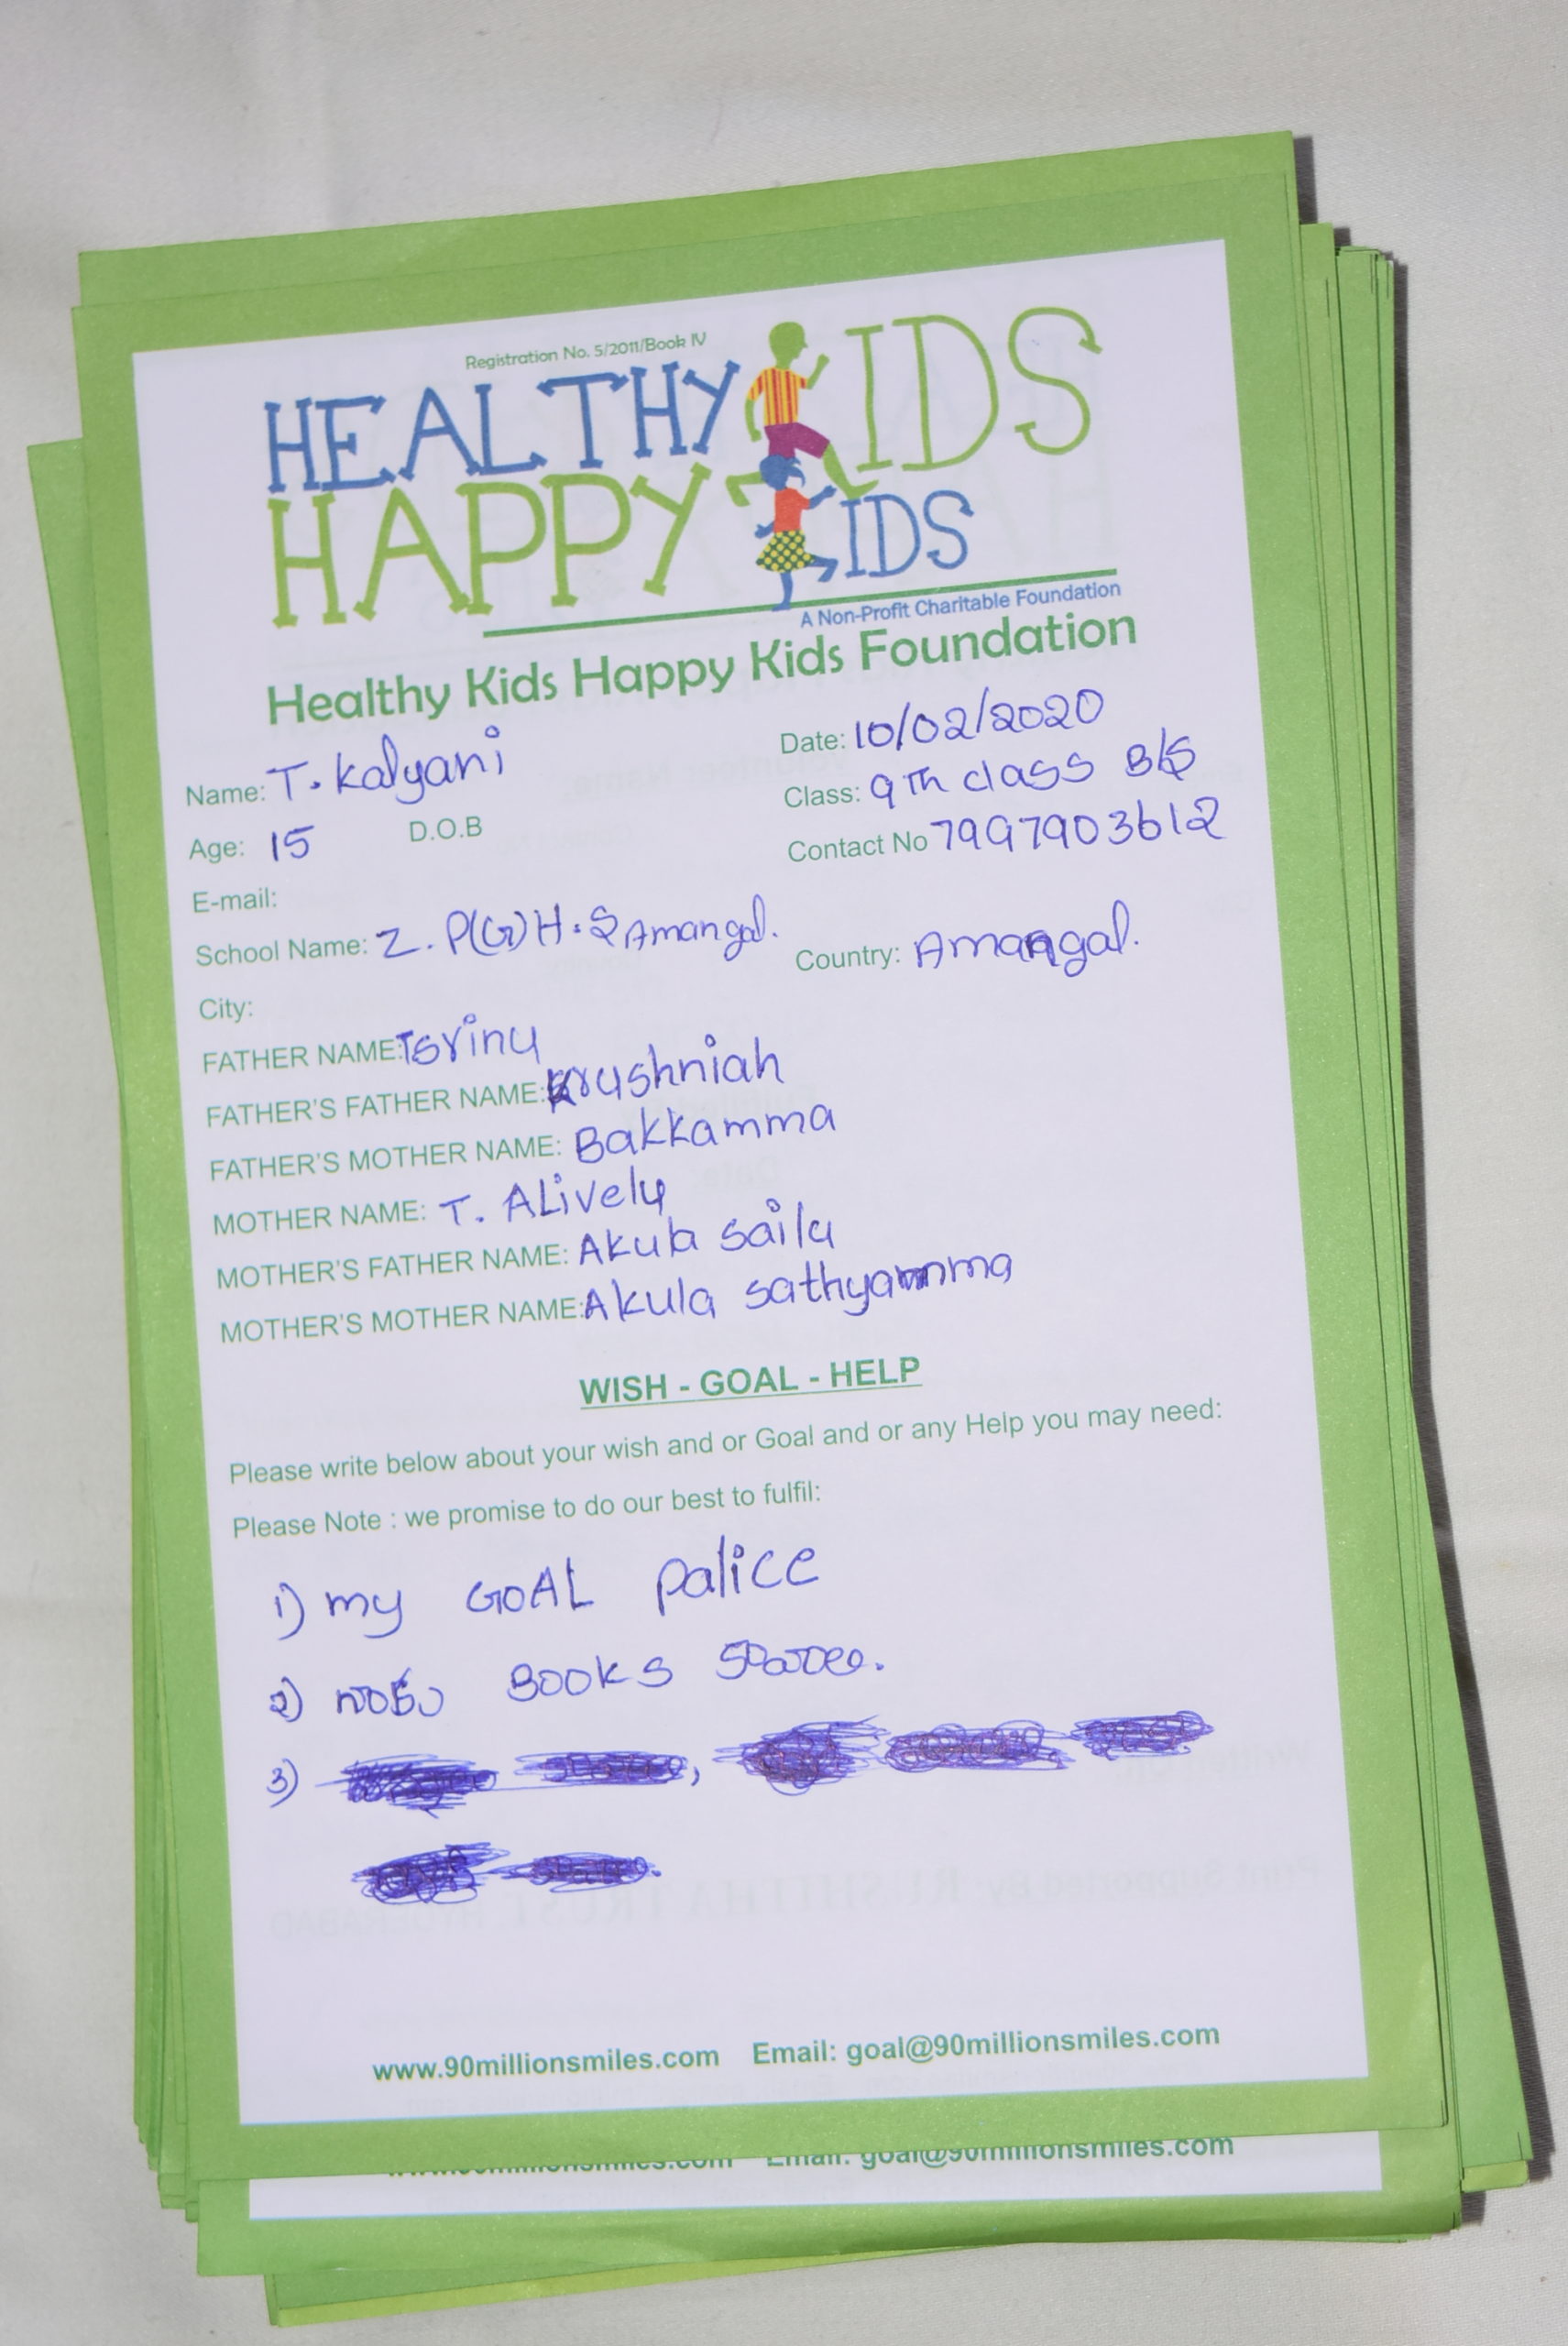 Registration No. 5/2011/Book IV
HEALTHY KIDS
HAPPY KIDS
A Non-Profit Charitable Foundation
Healthy Kids Happy Kids Foundation
Name: T. Kalyani
Date: 10/02/2020
Class: 9th class B/S
Age: 15 D.O.B
Contact No 7997903612
E-mail:
School Name: Z. P(G)H.S Amangal.
Country: Amangal.
City:
FATHER NAME: T Srinu
FATHER'S FATHER NAME: Krushniah
FATHER'S MOTHER NAME: Bakkamma
MOTHER NAME: T. ALively
MOTHER'S FATHER NAME: Akula sailu
MOTHER'S MOTHER NAME: Akula sathyamma
WISH - GOAL - HELP
Please write below about your wish and or Goal and or any Help you may need:
Please Note : we promise to do our best to fulfil:
1) my GOAL palice
2) నాకు Books కావాలి.
3)
www.90millionsmiles.com Email: goal@90millionsmiles.com
www.90millionsmiles.com Email: goal@90millionsmiles.com